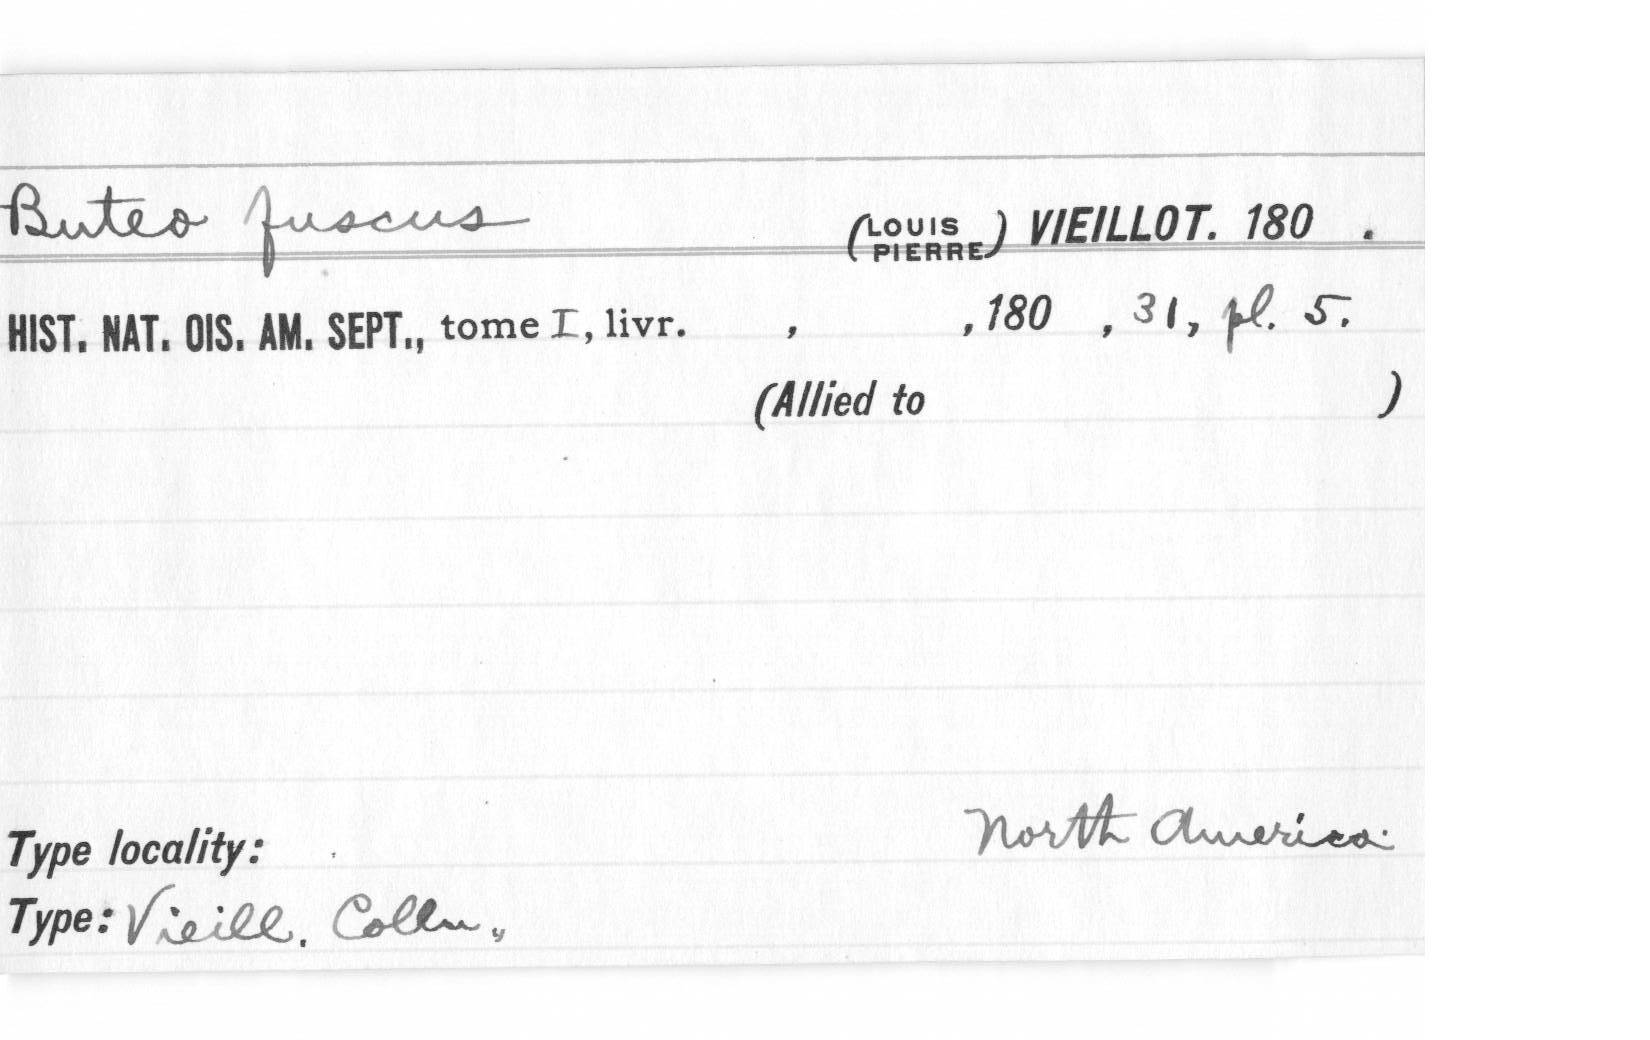 Buteo fuscus (LOUIS PIERRE) VIEILLOT. 180 .
HIST. NAT. OIS. AM. SEPT., tome I, livr. , , 180 , 31, pl. 5.
(Allied to )
Type locality: North America.
Type: Vieill. Colln.,